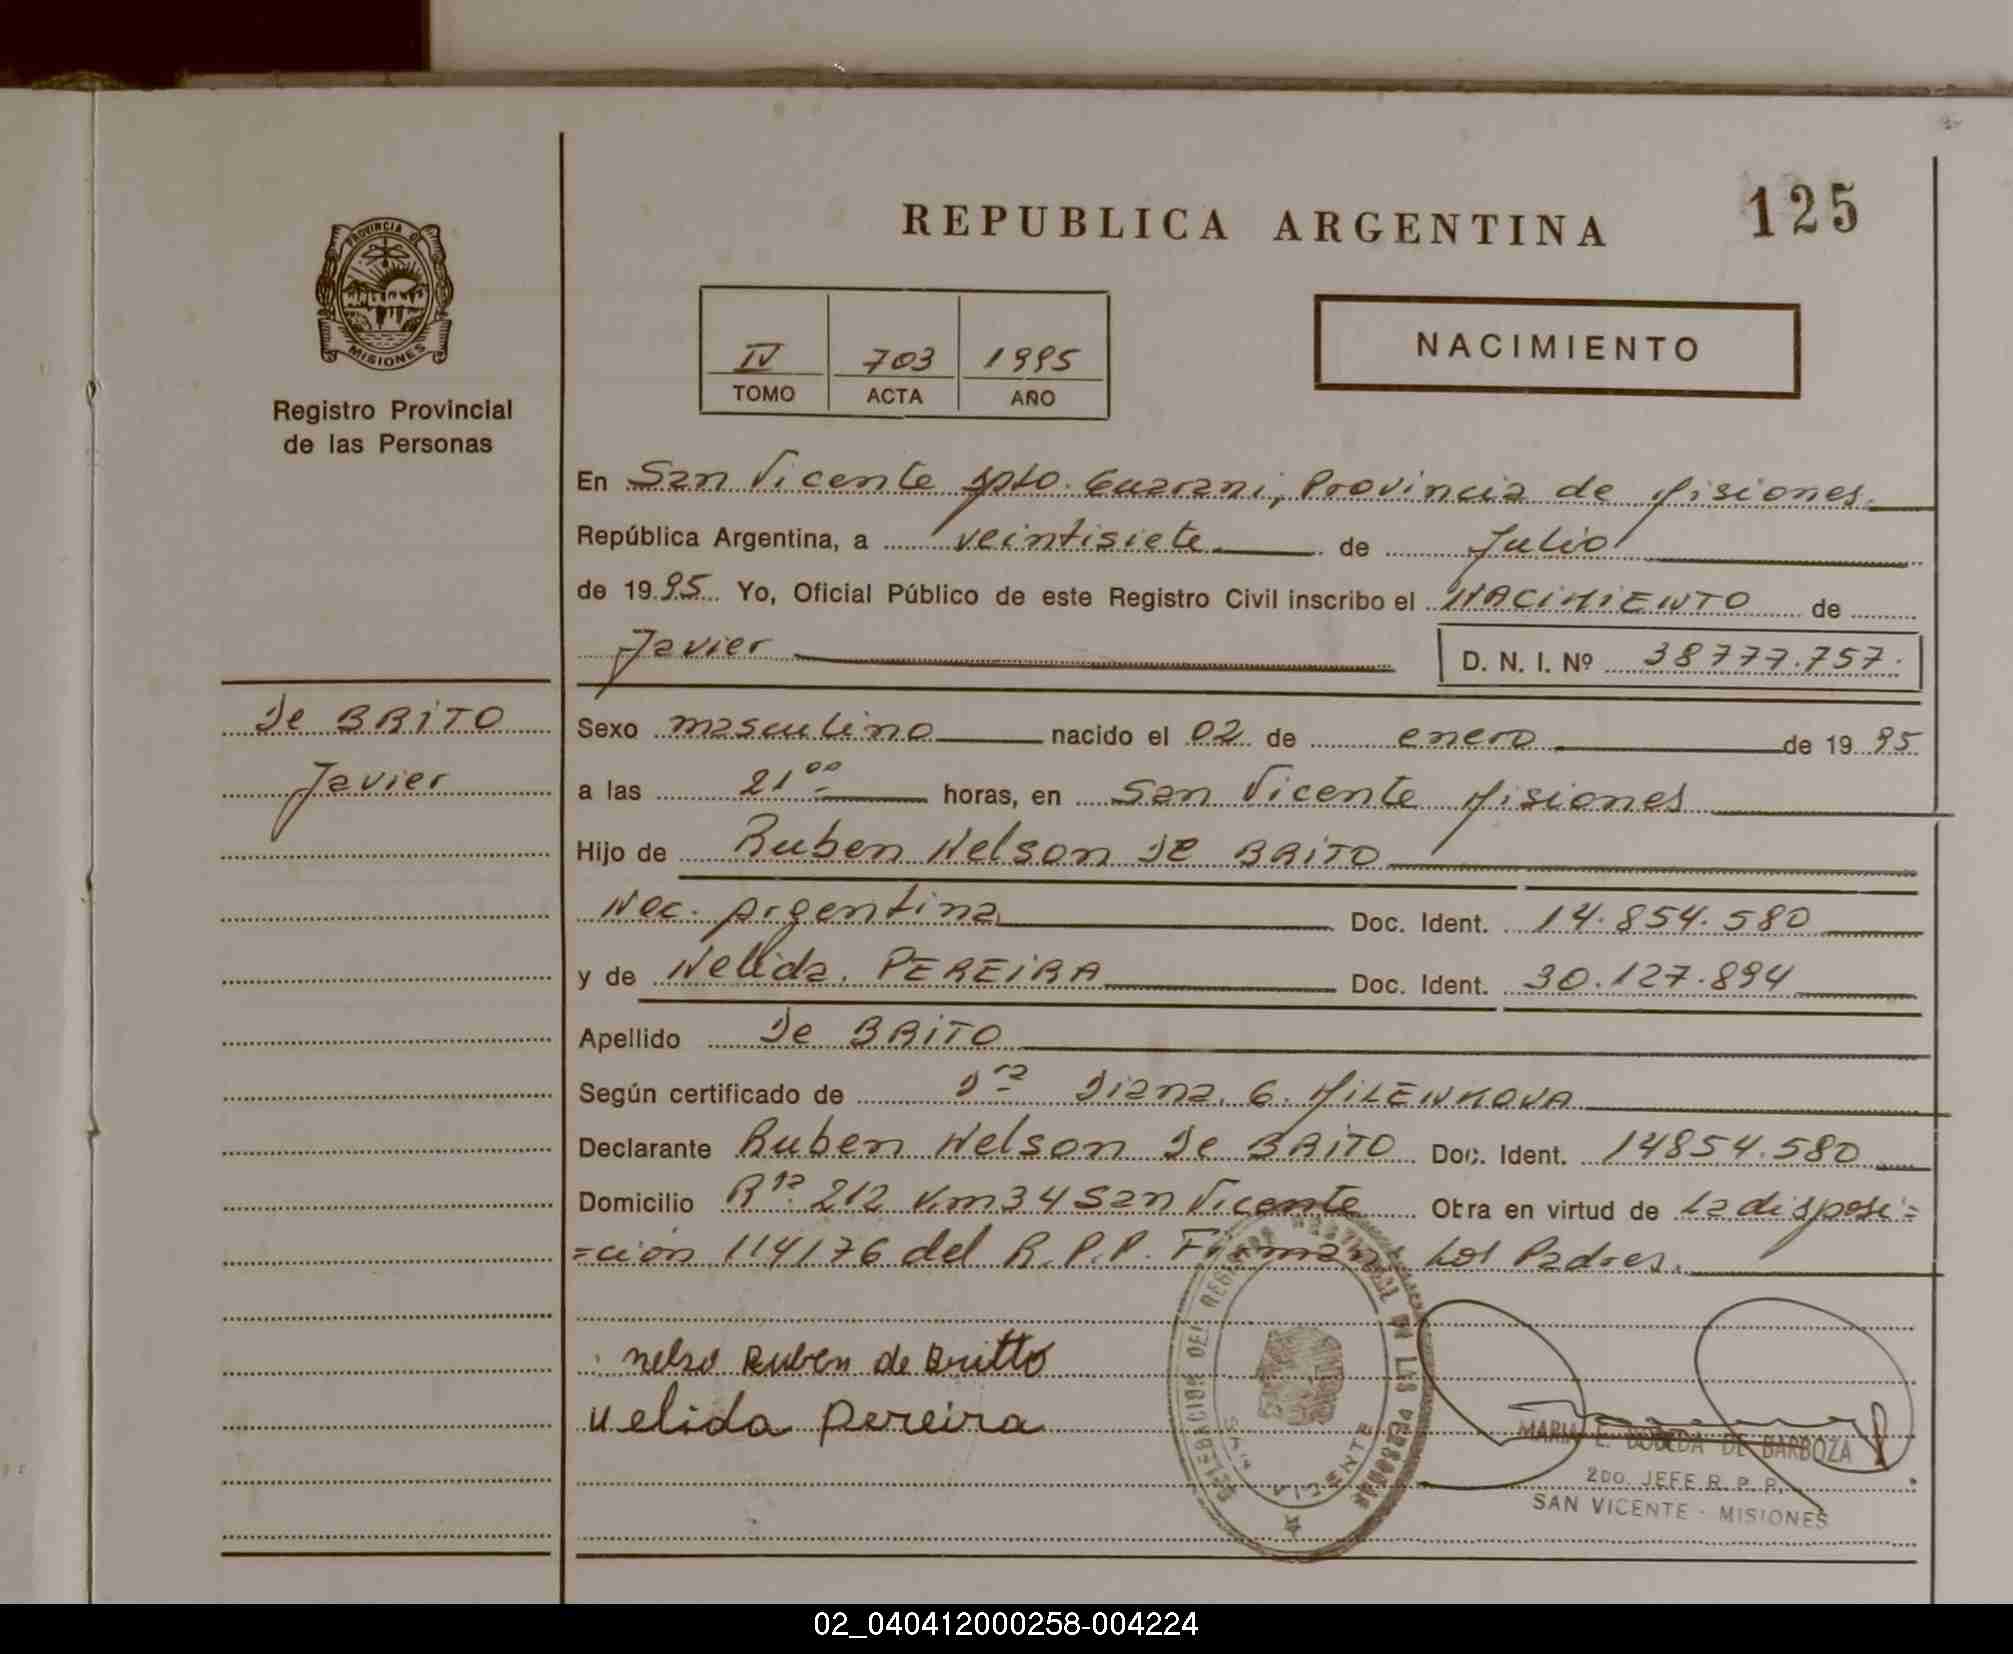 125
REPUBLICA ARGENTINA
PROVINCIA DE
MISIONES
Registro Provincial
de las Personas
IV 703 1995
TOMO ACTA AÑO
NACIMIENTO
En San Vicente Dpto. Guarani, Provincia de Misiones.
República Argentina, a veintisiete de Julio
de 1995 Yo, Oficial Público de este Registro Civil inscribo el NACIMIENTO de
Javier D. N. I. Nº 38777.757.
De BRITO
Javier
Sexo masculino nacido el 02 de enero de 1995
a las 21 00 horas, en San Vicente Misiones
Hijo de Ruben Nelson De BRITO
Nac. Argentina Doc. Ident. 14.854.580
y de Nelida PEREIRA Doc. Ident. 30.127.894
Apellido De BRITO
Según certificado de Dra Diana G. MILENKOVA
Declarante Ruben Nelson De BRITO Doc. Ident. 14854.580
Domicilio Rta. 212 Km 34 San Vicente Obra en virtud de La disposi=
=ción 114/76 del R.P.P. Firman Los Padres.
Ruben de Britto
Nelida Pereira
DELEGACION DEL REGISTRO PROVINCIAL DE LAS PERSONAS
SAN VICENTE
MARIA E. DE BARBOZA
2DO. JEFE R. P. P.
SAN VICENTE - MISIONES
02_040412000258-004224